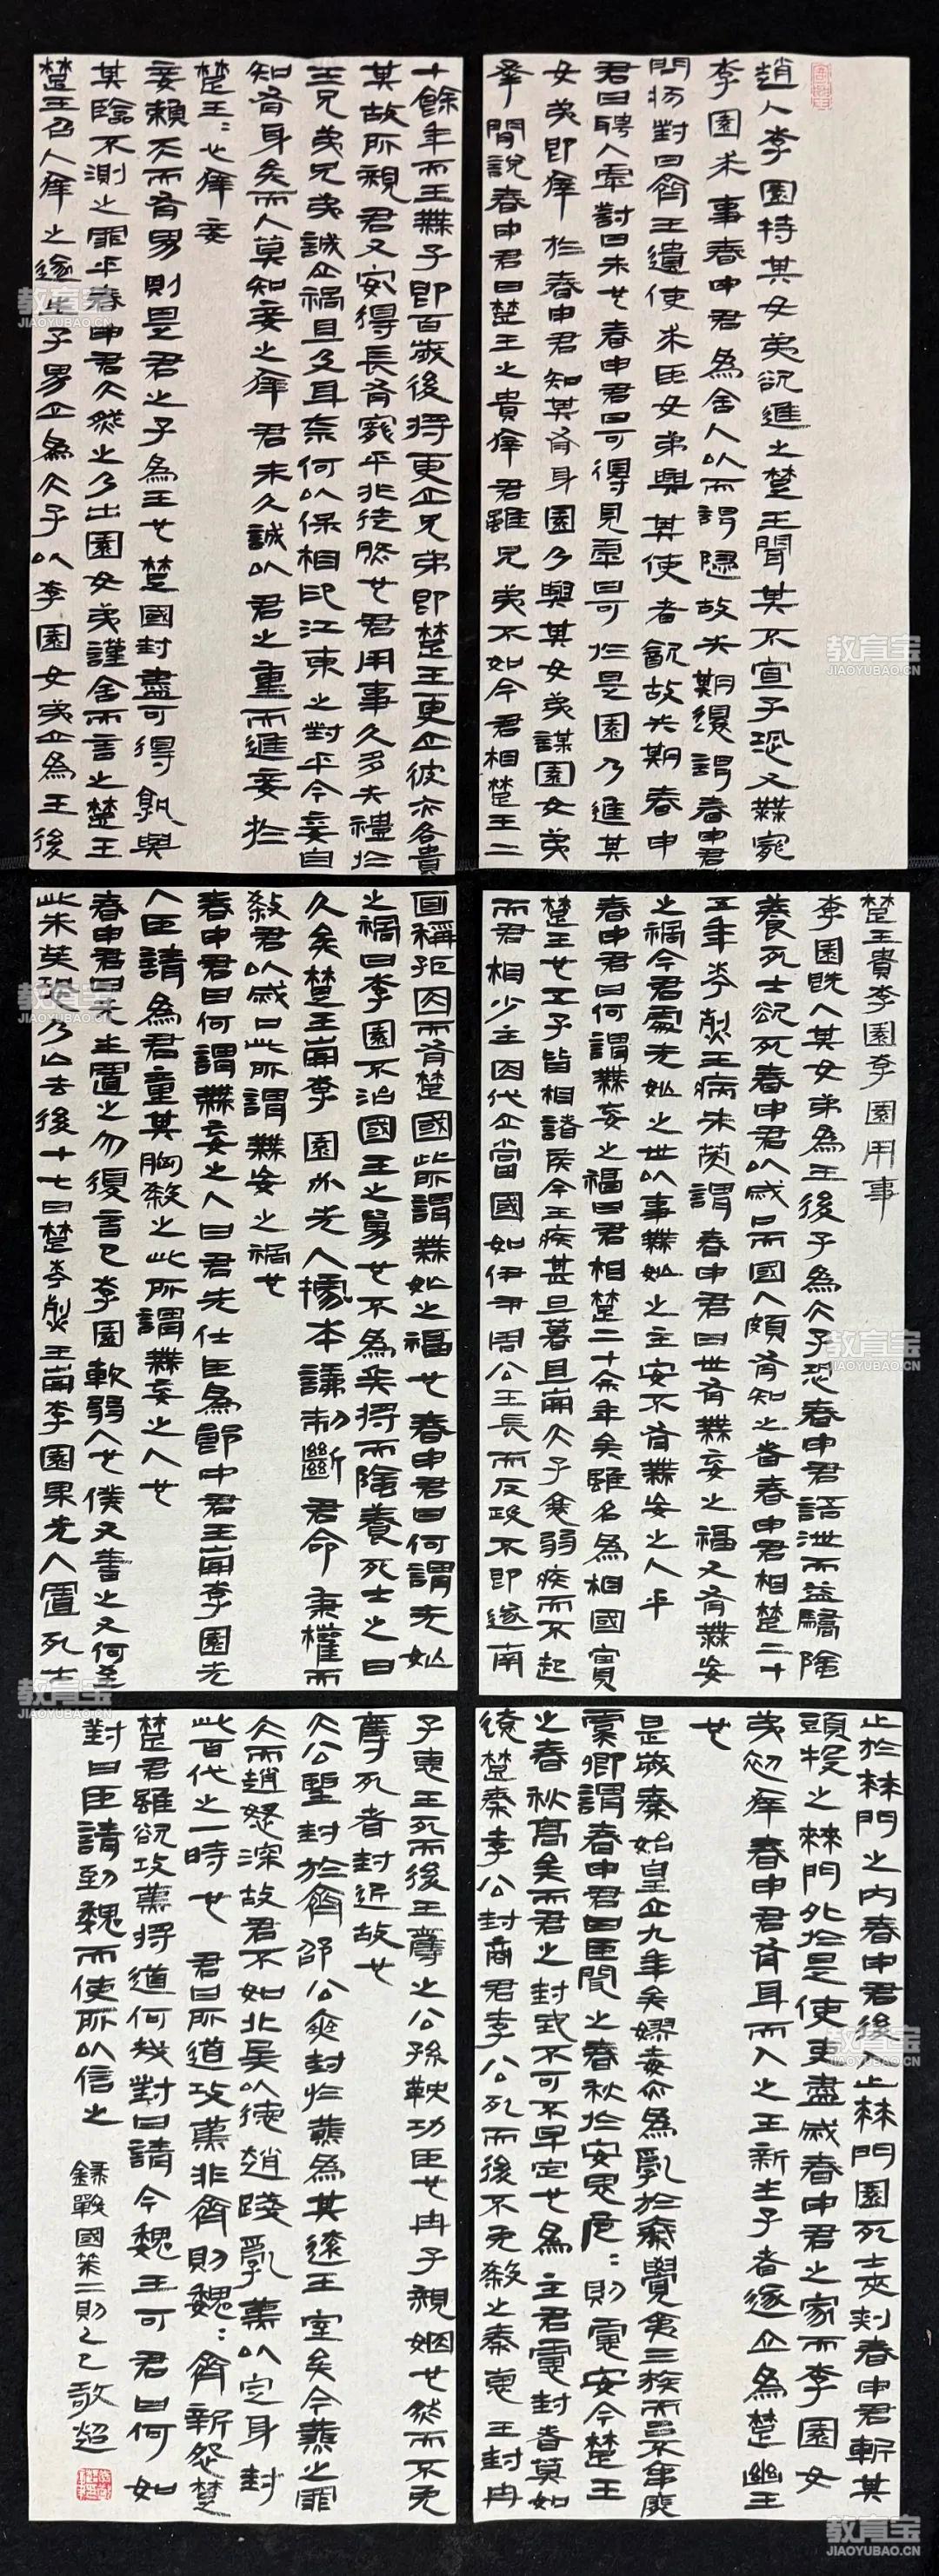 趙人李園持其女弟欲進之楚王聞其不宜子恐又無寵
李園求事春申君為舍人以而謁隱故失期還謁春申君
問狀對曰齊王遣使求臣女弟與其使者飲故失期春申
君曰聘入乎對曰未也春申君曰可得見乎曰可於是園乃進其
女弟即幸於春申君知其有身園乃與其女弟謀園女弟
承間說春申君曰楚王之貴幸君雖兄弟不如今君相楚王二
十餘年而王無子即百歲後將更立兄弟即楚王更立彼亦各貴
其故所親君又安得長有寵乎非徒然也君用事久多失禮於
王兄弟兄弟誠立禍且及身奈何以保相印江東之封乎今妾自
知有身矣而人莫知妾之幸君未久誠以君之重而進妾於
楚王:必幸妾
妾賴天而有男則是君之子為王也楚國封盡可得孰與
其臨不測之罪乎春申君大然之乃出園女弟謹舍而言之楚王
楚王召入幸之遂生子男立為太子以李園女弟立為王後
楚王貴李園李園用事
李園既入其女弟為王後子為太子恐春申君語泄而益驕陰
養死士欲死春申君以滅口而國人頗有知之者春申君相楚二十
五年考烈王病朱英謂春申君曰世有無妄之福又有無妄
之禍今君處無妄之世以事無妄之主安不有無妄之人乎
春申君曰何謂無妄之福曰君相楚二十余年矣雖名為相國實
楚王也五子皆相諸侯今王疾甚旦暮且崩太子衰弱疾而不起
而君相少主因代立當國如伊尹周公王長而反政不即遂南
面稱孤因而有楚國此所謂無妄之福也春申君曰何謂無妄
之禍曰李園不治國王之舅也不為兵將而陰養死士之日
久矣楚王崩李園必先入據本議制斷君命秉權而
殺君以滅口此所謂無妄之禍也
春申君曰何謂無妄之人曰君先仕臣為郎中君王崩李園先
入臣請為君童其胸殺之此所謂無妄之人也
春申君曰先生置之勿復言已李園軟弱人也僕又善之又何至
此朱英恐乃亡去後十七日楚考烈王崩李園果先入置死士
止於棘門之內春申君後入止棘門園死士夾刺春申君斬其
頭投之棘門外於是使吏盡滅春申君之家而李園女
弟初幸春申君有身而入之王所生子者遂立為楚幽王
也
是歲秦始皇立九年矣嫪毐亦為亂於秦覺夷三族而呂不韋廢
虞卿謂春申君曰臣聞之春秋於安思危:則慮安今楚王
之春秋高矣而君之封地不可不早定也為主君慮封者莫如
遠楚秦孝公封商君孝公死而後不免殺之秦惠王封冉
子惠王死而後王奪之公孫鞅功臣也冉子親姻也然而不免
奪死者封近故也
太公望封於齊邵公奭封於燕為其遠王室矣今燕之罪
大而趙怒深故君不如北兵以德趙踐亂燕以定身封
此百代之一時也 君曰所道攻燕非齊則魏:齊新怨楚
楚君雖欲攻燕將道何哉對曰請令魏王可君曰何如
對曰臣請到魏而使所以信之 錄戰國策二則乙巳敬超
教育宝
JIAOYUBAO.CN